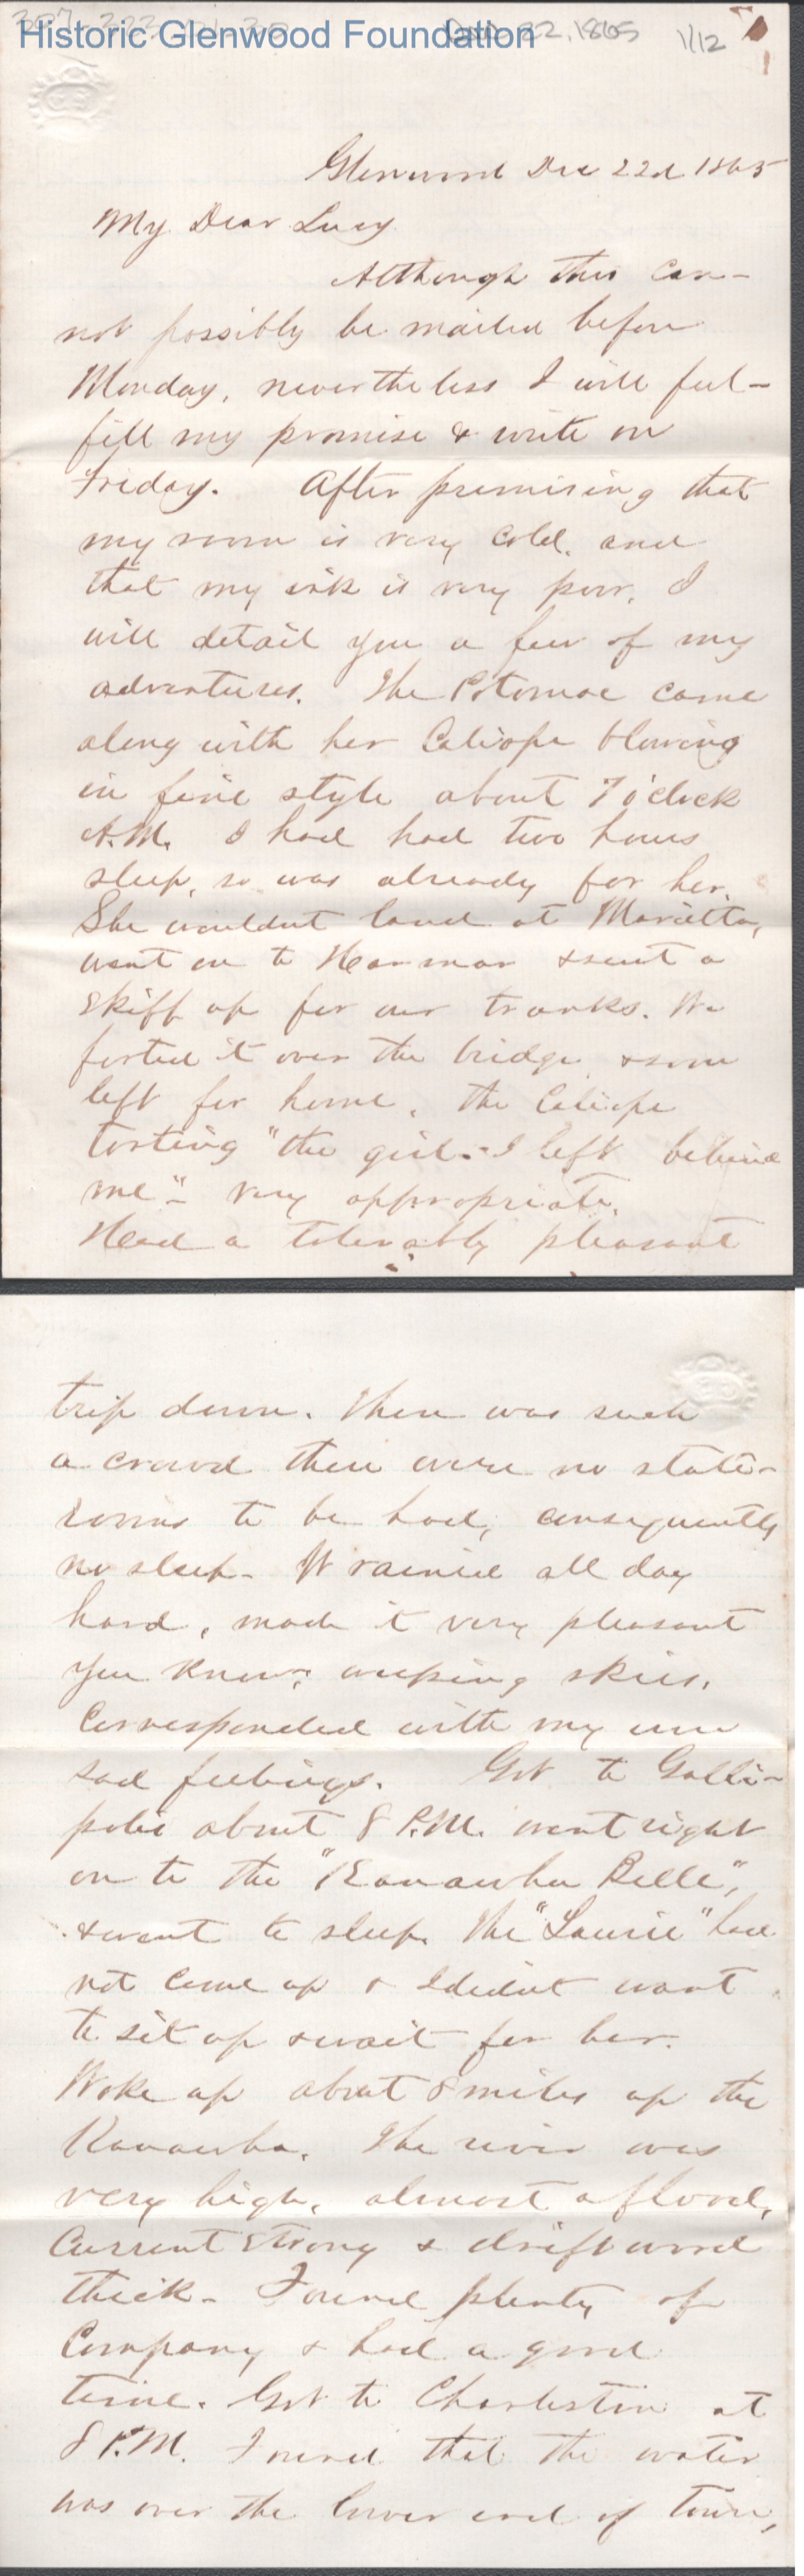 Historic Glenwood Foundation
Dec 22, 1865
1/12
Glenwood Dec 22d 1865
My Dear Lucy
Although this can-
not possibly be mailed before
Monday, nevertheless I will ful-
fill my promise & write on
Friday. After premising that
my room is very cold, and
that my ink is very poor, I
will detail you a few of my
adventures. The Potomac came
along with her Caliope blowing
in fine style about 7 o'clock
A.M. I had had two hours
sleep, so was already for her.
She wouldnt land at Marietta,
went on to Harmar & sent a
skiff up for our trunks. We
footed it over the bridge & soon
left for home, the Caliope
tooting "the girl I left behind
me" - very appropriate.
Had a tolerably pleasant
trip down. There was such
a crowd there were no state-
rooms to be had, consequently
no sleep - It rained all day
hard, made it very pleasant
you know, weeping skies,
corresponded with my own
sad feelings. Got to Galli-
polis about 8 P.M. went right
on to the "Kanawha Belle",
& went to sleep. The "Laurie" had
not come up & I didnt want
to sit up & wait for her.
Woke up about 8 miles up the
Kanawha. The river was
very high, almost a flood,
Current strong & driftwood
thick - Found plenty of
Company & had a good
time. Got to Charleston at
8 P.M. Found that the water
was over the lower end of town,